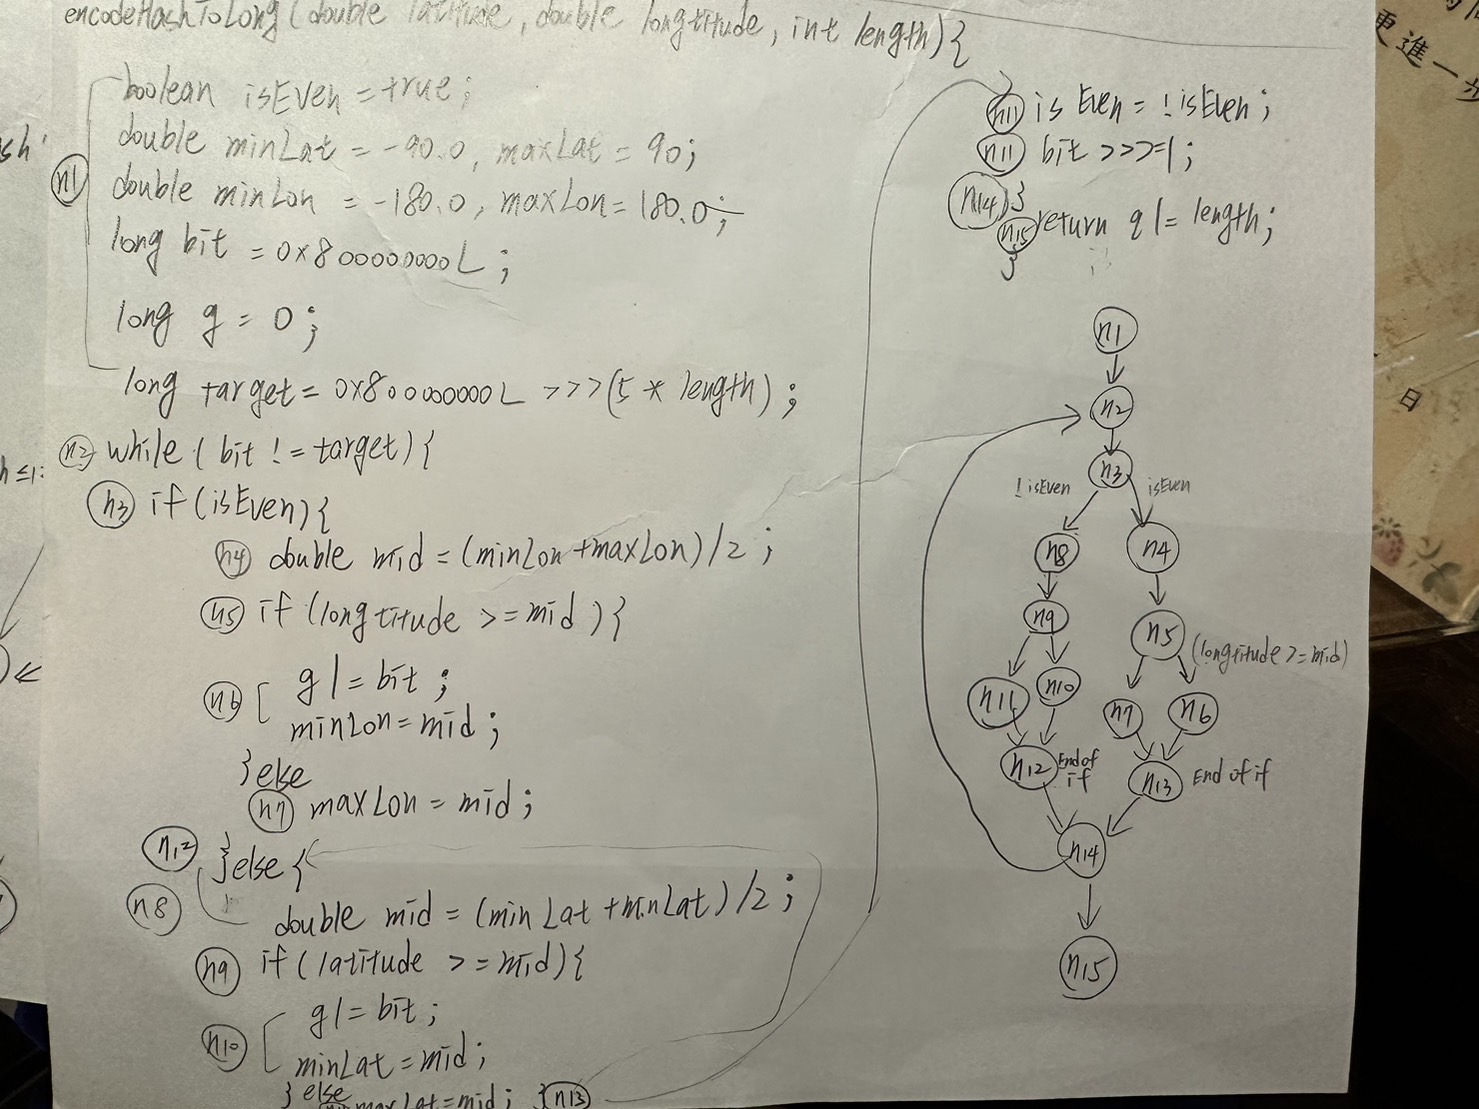 encodeHashToLong(double latitude, double longtitude, int length){
boolean isEven = true;
double minLat = -90.0, maxLat = 90;
n1 double minLon = -180.0, maxLon = 180.0;
long bit = 0x800000000L;
long g = 0;
long target = 0x800000000L >>> (5 * length);
n2 while (bit != target){
n3 if (isEven){
n4 double mid = (minLon + maxLon)/2;
n5 if (longtitude >= mid){
n6 g |= bit;
minLon = mid;
}else
n7 maxLon = mid;
n12 }else{
n8 double mid = (minLat + minLat)/2;
n9 if (latitude >= mid){
g |= bit;
n10
minLat = mid;
} else
maxLat = mid; } n13
n11 isEven = !isEven;
n11 bit >>>=1;
n14 }
n15 return g |= length;
}
n1
n2
n3
!isEven isEven
n8 n4
n9 n5 (longtitude >= mid)
n11 n10 n7 n6
n12 End of if n13 End of if
n14
n15
更進一步
日
sh
h ≤1: